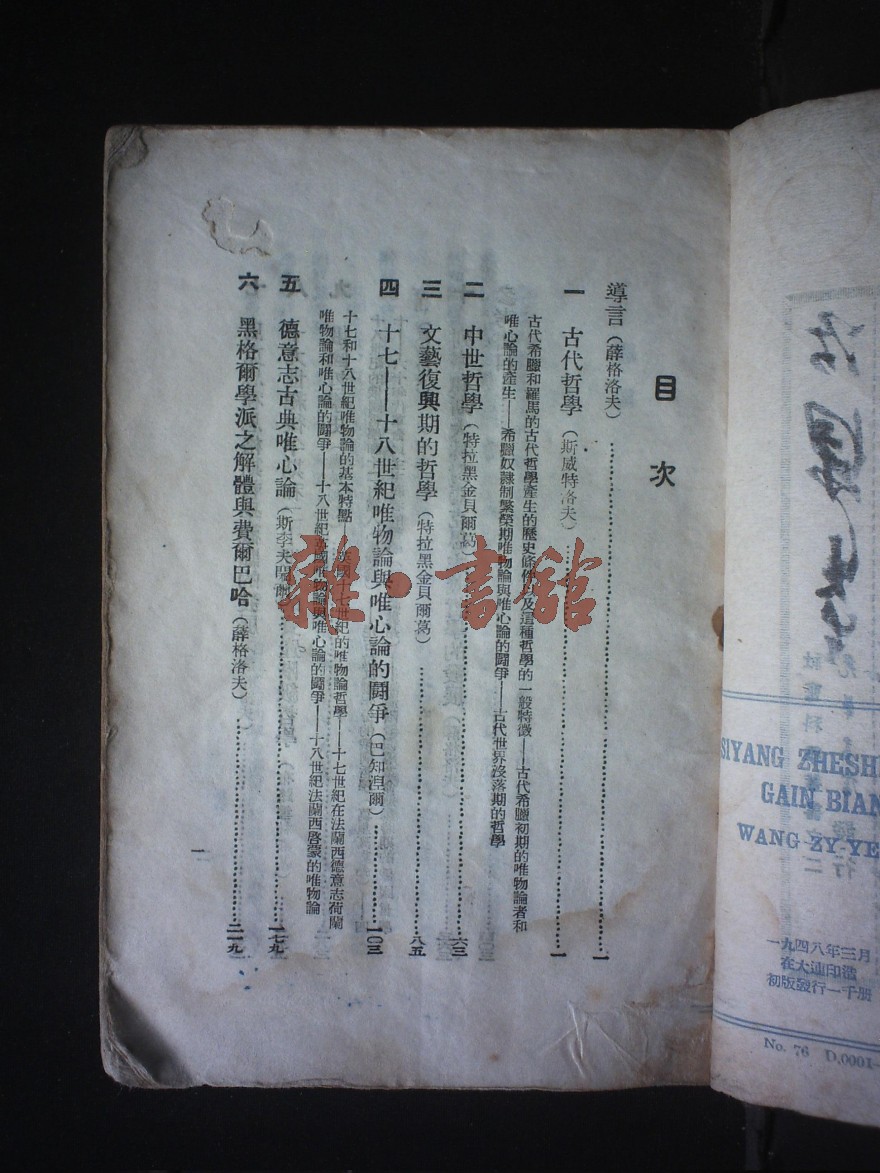 目次
導言（薛格洛夫）……一
一 古代哲學（斯威特洛夫）……一
古代希臘和羅馬的古代哲學產生的歷史條件以及這種哲學的一般特徵——古代希臘初期的唯物論者和
唯心論的產生——希臘奴隸制繁榮期唯物論與唯心論的鬪爭——古代世界沒落期的哲學
二 中世哲學（特拉黑金貝爾葛）……六三
三 文藝復興期的哲學（特拉黑金貝爾葛）……八五
四 十七——十八世紀唯物論與唯心論的鬪爭（巴知涅爾）……一〇三
十七和十八世紀唯物論的基本特點——英國十七世紀的唯物論哲學——十七世紀在法蘭西德意志荷蘭
唯物論和唯心論的鬪爭——十八世紀英國唯物論與唯心論的鬪爭——十八世紀法蘭西啓蒙的唯物論
五 德意志古典唯心論（斯李夫）……一七九
六 黑格爾學派之解體與費爾巴哈（薛格洛夫）……二一九
一
雜·書館
SIYANG ZHESH
GAIN BIAN
WANG ZY-YE
一九四八年三月
在大連印造
初版發行一千册
No. 76 D.0001-